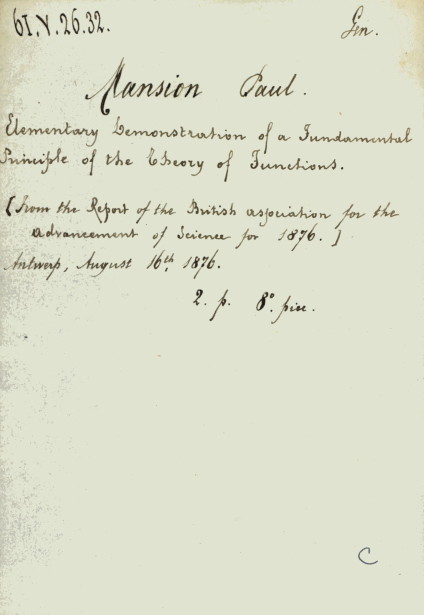 61.V.26.32.
Gen.
Mansion Paul.
Elementary Demonstration of a Fundamental
Principle of the Theory of Functions.
(from the Report of the British association for the
advancement of Science for 1876.)
Antwerp, August 16th 1876.
2. p. 8°. pièce.
C